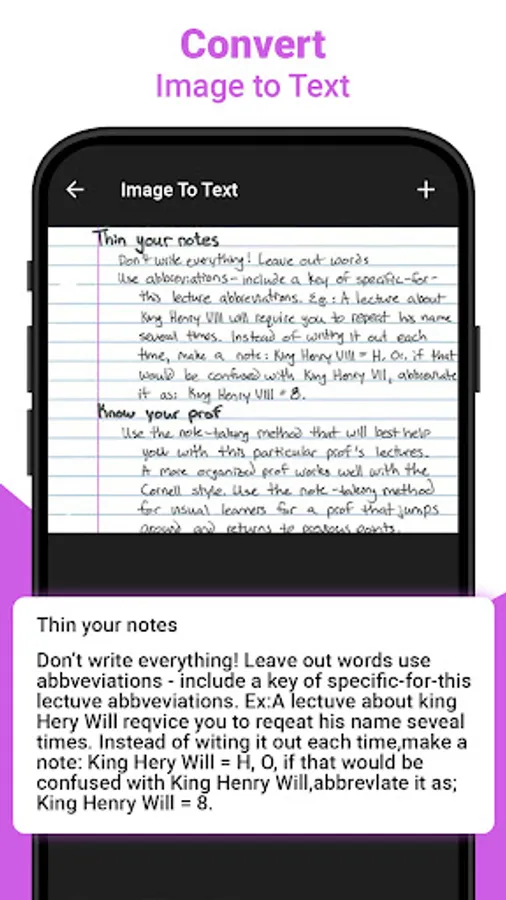 Convert
Image to Text
Image To Text
Thin your notes
Don't write everything! Leave out words
Use abbreviations - include a key of specific-for-
this lecture abbreviations. Eg.: A lecture about
King Henry VIII will require you to repeat his name
several times. Instead of writing it out each
time, make a note: King Henry VIII = H. Or, if that
would be confused with King Henry VII, abbreviate
it as: King Henry VIII = 8.
Know your prof
Use the note-taking method that will best help
you with this particular prof's lectures.
A more organized prof works well with the
Cornell style. Use the note-taking method
for visual learners for a prof that jumps
around and returns to previous points.
Thin your notes
Don't write everything! Leave out words use
abbveviations - include a key of specific-for-this
lectuve abbveviations. Ex:A lectuve about king
Hery Will reqvice you to reqeat his name seveal
times. Instead of witing it out each time,make a
note: King Hery Will = H, O, if that would be
confused with King Henry Will,abbrevlate it as;
King Henry Will = 8.